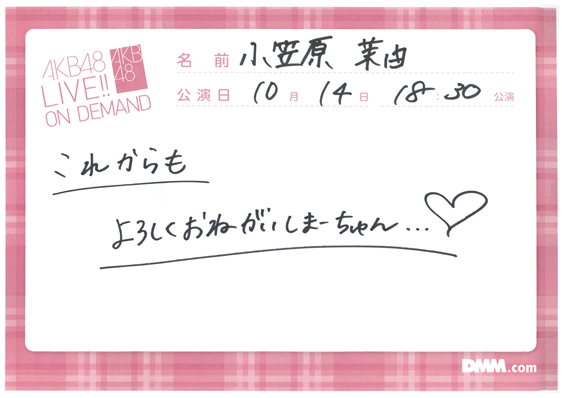 AKB48
LIVE!!
ON DEMAND
AKB
48
名前 小笠原 茉由
公演日 10月 14日 18:30 公演
これからも
よろしくおねがいしまーちゃん...♡
DMM.com